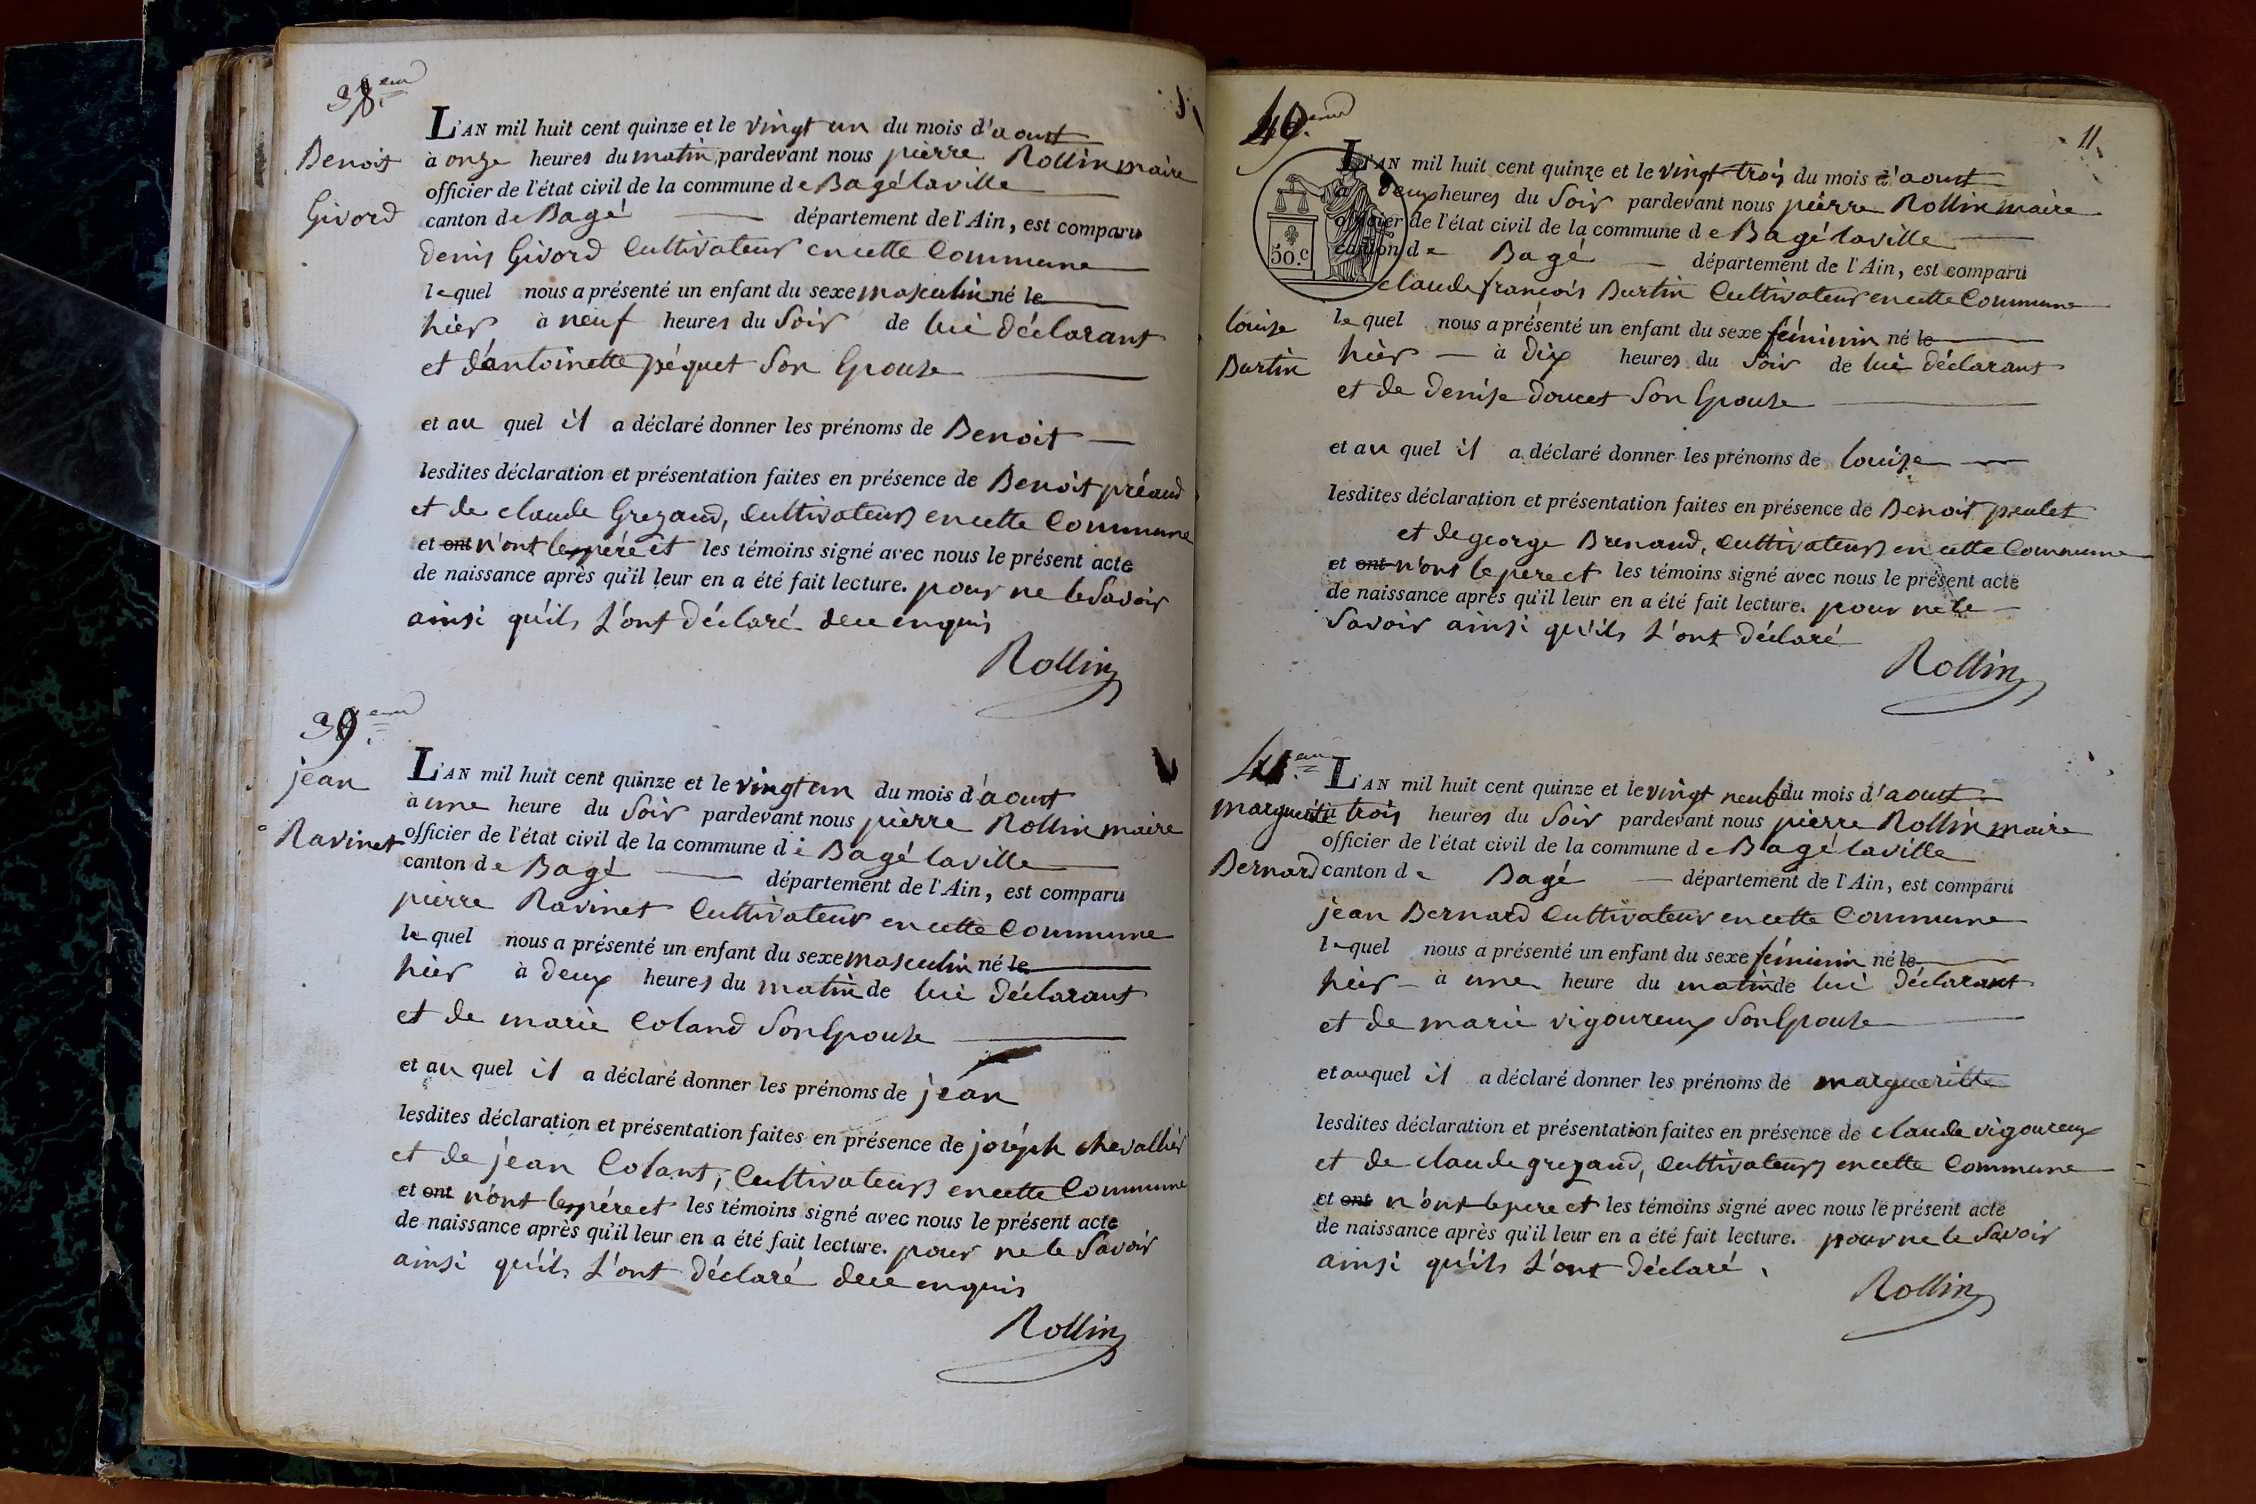 38.eme
Benoit
Givord
L'AN mil huit cent quinze et le vingt un du mois d'aoust
à onze heures du matin pardevant nous pierre Rollin maire
officier de l'état civil de la commune de Bagé laville
canton de Bagé département de l'Ain, est comparu
denis Givord Cultivateur en cette Commune
lequel nous a présenté un enfant du sexe masculin né le
hier à neuf heures du Soir de lui déclarant
et d'antoinette péquet Son Epouse
et au quel il a déclaré donner les prénoms de Benoit
lesdites déclaration et présentation faites en présence de Benoit préaud
et de claude Grezaud, Cultivateurs en cette Commune
et ont n'ont les père et les témoins signé avec nous le présent acte
de naissance après qu'il leur en a été fait lecture. pour ne le Savoir
ainsi qu'ils L'ont déclaré dece enquis
Rollin
39.eme
jean
Ravinet
L'AN mil huit cent quinze et le vingt un du mois d'aoust
à une heure du Soir pardevant nous pierre Rollin maire
officier de l'état civil de la commune de Bagé laville
canton de Bagé département de l'Ain, est comparu
pierre Ravinet Cultivateur en cette Commune
le quel nous a présenté un enfant du sexe masculin né le
hier à deux heures du matin de lui déclarant
et de marie Coland Son Epouse
et au quel il a déclaré donner les prénoms de jean
lesdites déclaration et présentation faites en présence de joséph chevallier
et de jean Colant, Cultivateurs en cette Commune
et ont n'ont les père et les témoins signé avec nous le présent acte
de naissance après qu'il leur en a été fait lecture. pour ne le Savoir
ainsi qu'ils L'ont déclaré dece enquis
Rollin
11
40.eme
50.c
louise
Burtin
L'AN mil huit cent quinze et le vingt trois du mois d'aoust
à deux heures du Soir pardevant nous pierre Rollin maire
officier de l'état civil de la commune de Bagé laville
canton de Bagé département de l'Ain, est comparu
claude françois Burtin Cultivateur en cette Commune
le quel nous a présenté un enfant du sexe féminin né le
hier à dix heures du Soir de lui déclarant
et de denise doucet Son Epouse
et au quel il a déclaré donner les prénoms de louise
lesdites déclaration et présentation faites en présence de Benoit peulet
et de george Brenaud, Cultivateurs en cette Commune
et ont n'ont le pere et les témoins signé avec nous le présent acte
de naissance après qu'il leur en a été fait lecture. pour ne le
Savoir ainsi qu'ils L'ont déclaré
Rollin
41.eme
marguerite
Bernard
L'AN mil huit cent quinze et le vingt neuf du mois d'aoust
à trois heures du Soir pardevant nous pierre Rollin maire
officier de l'état civil de la commune de Bagé laville
canton de Bagé département de l'Ain, est comparu
jean Bernard Cultivateur en cette Commune
lequel nous a présenté un enfant du sexe féminin né le
hier à une heure du matin de lui déclarant
et de marie vigoureux Son Epouse
et auquel il a déclaré donner les prénoms de margueritte
lesdites déclaration et présentation faites en présence de claude vigoureux
et de claude grezaud, Cultivateurs en cette Commune
et ont n'ont le pere et les témoins signé avec nous le présent acte
de naissance après qu'il leur en a été fait lecture. pour ne le Savoir
ainsi qu'ils L'ont déclaré.
Rollin